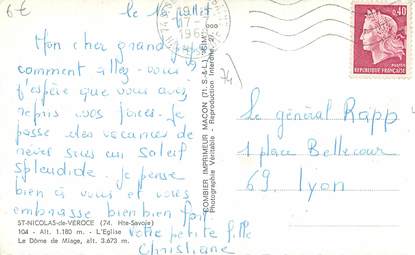 6€
le 16 juillet
Mon cher grand père
comment allez-vous?
J'espère que vous avez
repris vos forces. Je
passe des vacances de
rêves sous un soleil
splendide. Je pense
bien à vous et vous
embrasse bien bien fort
votre petite fille
Christiane
ST-NICOLAS-de-VEROCE (74. Hte-Savoie)
104 - Alt. 1.180 m. - L'Eglise
Le Dôme de Miage, alt. 3.673 m.
COMBIER IMPRIMEUR MACON (71. S.-&-L.) "CIM"
Photographie Véritable - Reproduction Interdite
74
0,40
POSTES
REPUBLIQUE FRANÇAISE
Le général Rapp
1 place Bellecour
69. Lyon